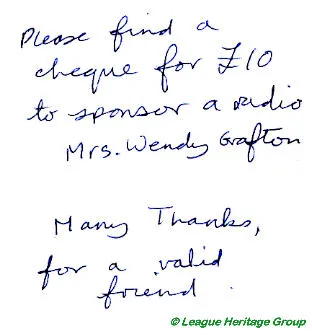 Please find a
cheque for £10
to sponsor a radio
Mrs. Wendy Grafton
Many Thanks,
for a valid
friend.
© League Heritage Group